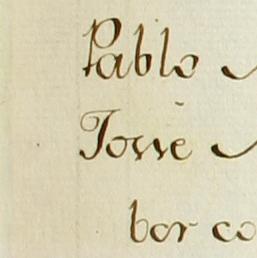 Pablo
Torre
bor co